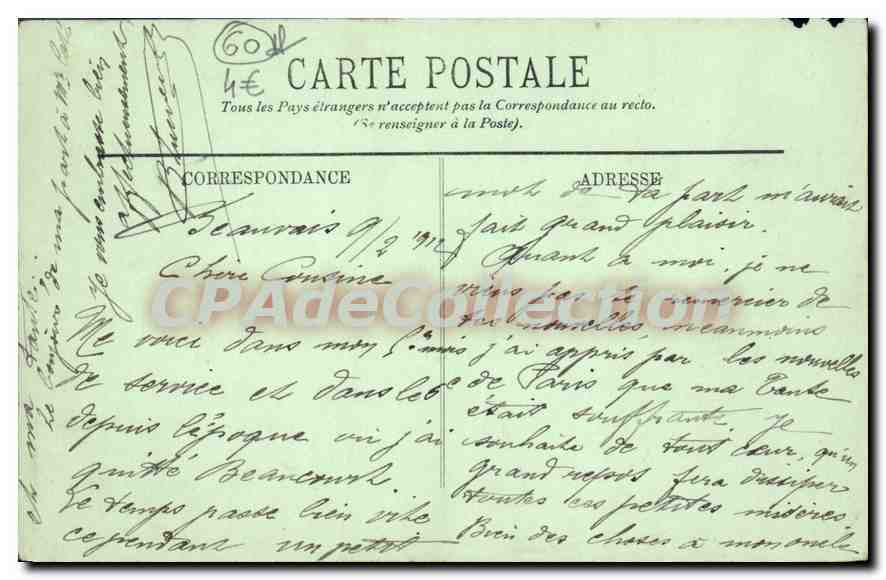 60
4€
CARTE POSTALE
Tous les Pays étrangers n'acceptent pas la Correspondance au recto.
(Se renseigner à la Poste).
CORRESPONDANCE
ADRESSE
Beauvais 9/2 1912
Chère Cousine
Me voici dans mon 5e mois
de service et dans le 6e
depuis l'époque où j'ai
quitté Beaucourt
Le temps passe bien vite
cependant un petit
mot de ta part m'aurait
fait grand plaisir.
Quant à moi, je ne
viens pas te remercier de
tes nouvelles, néanmoins
j'ai appris par les nouvelles
de Paris que ma Tante
était souffrante, je
souhaite de tout cœur, qu'un
grand repos fera dissiper
toutes ces petites misères
Bien des choses à mon oncle
et ma Tante.
Le bonjour de ma part à Mr
Je vous embrasse bien
affectueusement
CPAdeCollection